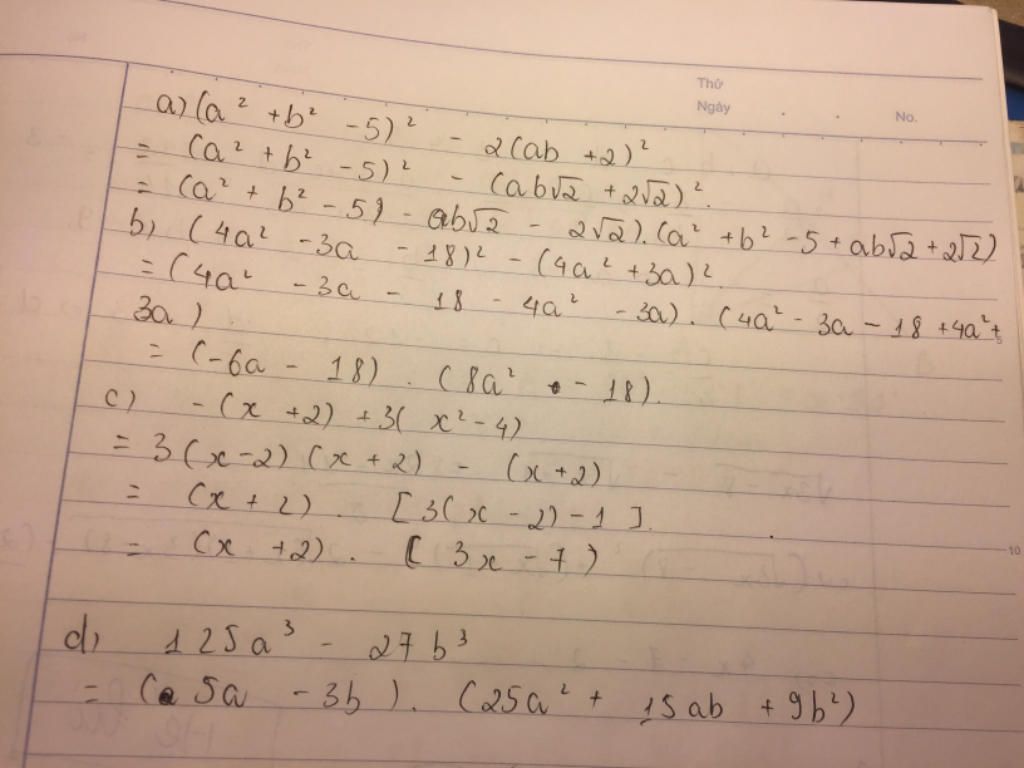 Thứ
Ngày
No.
a) (a² + b² - 5)² - 2(ab + 2)²
= (a² + b² - 5)² - (ab√2 + 2√2)².
= (a² + b² - 5) - ab√2 - 2√2).(a² + b² - 5 + ab√2 + 2√2)
b) (4a² - 3a - 18)² - (4a² + 3a)².
= (4a² - 3a - 18 - 4a² - 3a) . (4a² - 3a - 18 + 4a² +
3a)
= (-6a - 18) . (8a² - 18).
c) - (x + 2) + 3(x² - 4)
= 3(x - 2)(x + 2) - (x + 2)
= (x + 2) . [3(x - 2) - 1].
= (x + 2) . (3x - 7)
10
d) 125a³ - 27b³
= (5a - 3b) . (25a² + 15ab + 9b²)